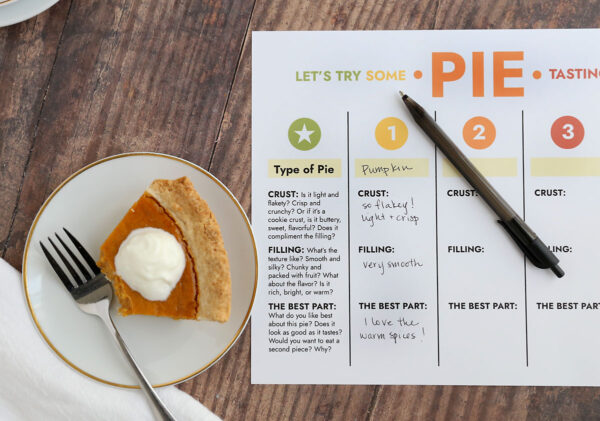 LET'S TRY SOME • PIE • TASTING
1 2 3
Type of Pie
CRUST: Is it light and
flakety? Crisp and
crunchy? Or if it's a
cookie crust, is it buttery,
sweet, flavorful? Does it
compliment the filling?
FILLING: What's the
texture like? Smooth and
silky? Chunky and
packed with fruit? What
about the flavor? Is it
rich, bright, or warm?
THE BEST PART:
What do you like best
about this pie? Does it
look as good as it tastes?
Would you want to eat a
second piece? Why?
Pumpkin
CRUST:
so flakey!
light + crisp
FILLING:
very smooth
THE BEST PART:
I love the
warm spices!
CRUST:
FILLING:
THE BEST PART:
CRUST:
FILLING:
THE BEST PART: